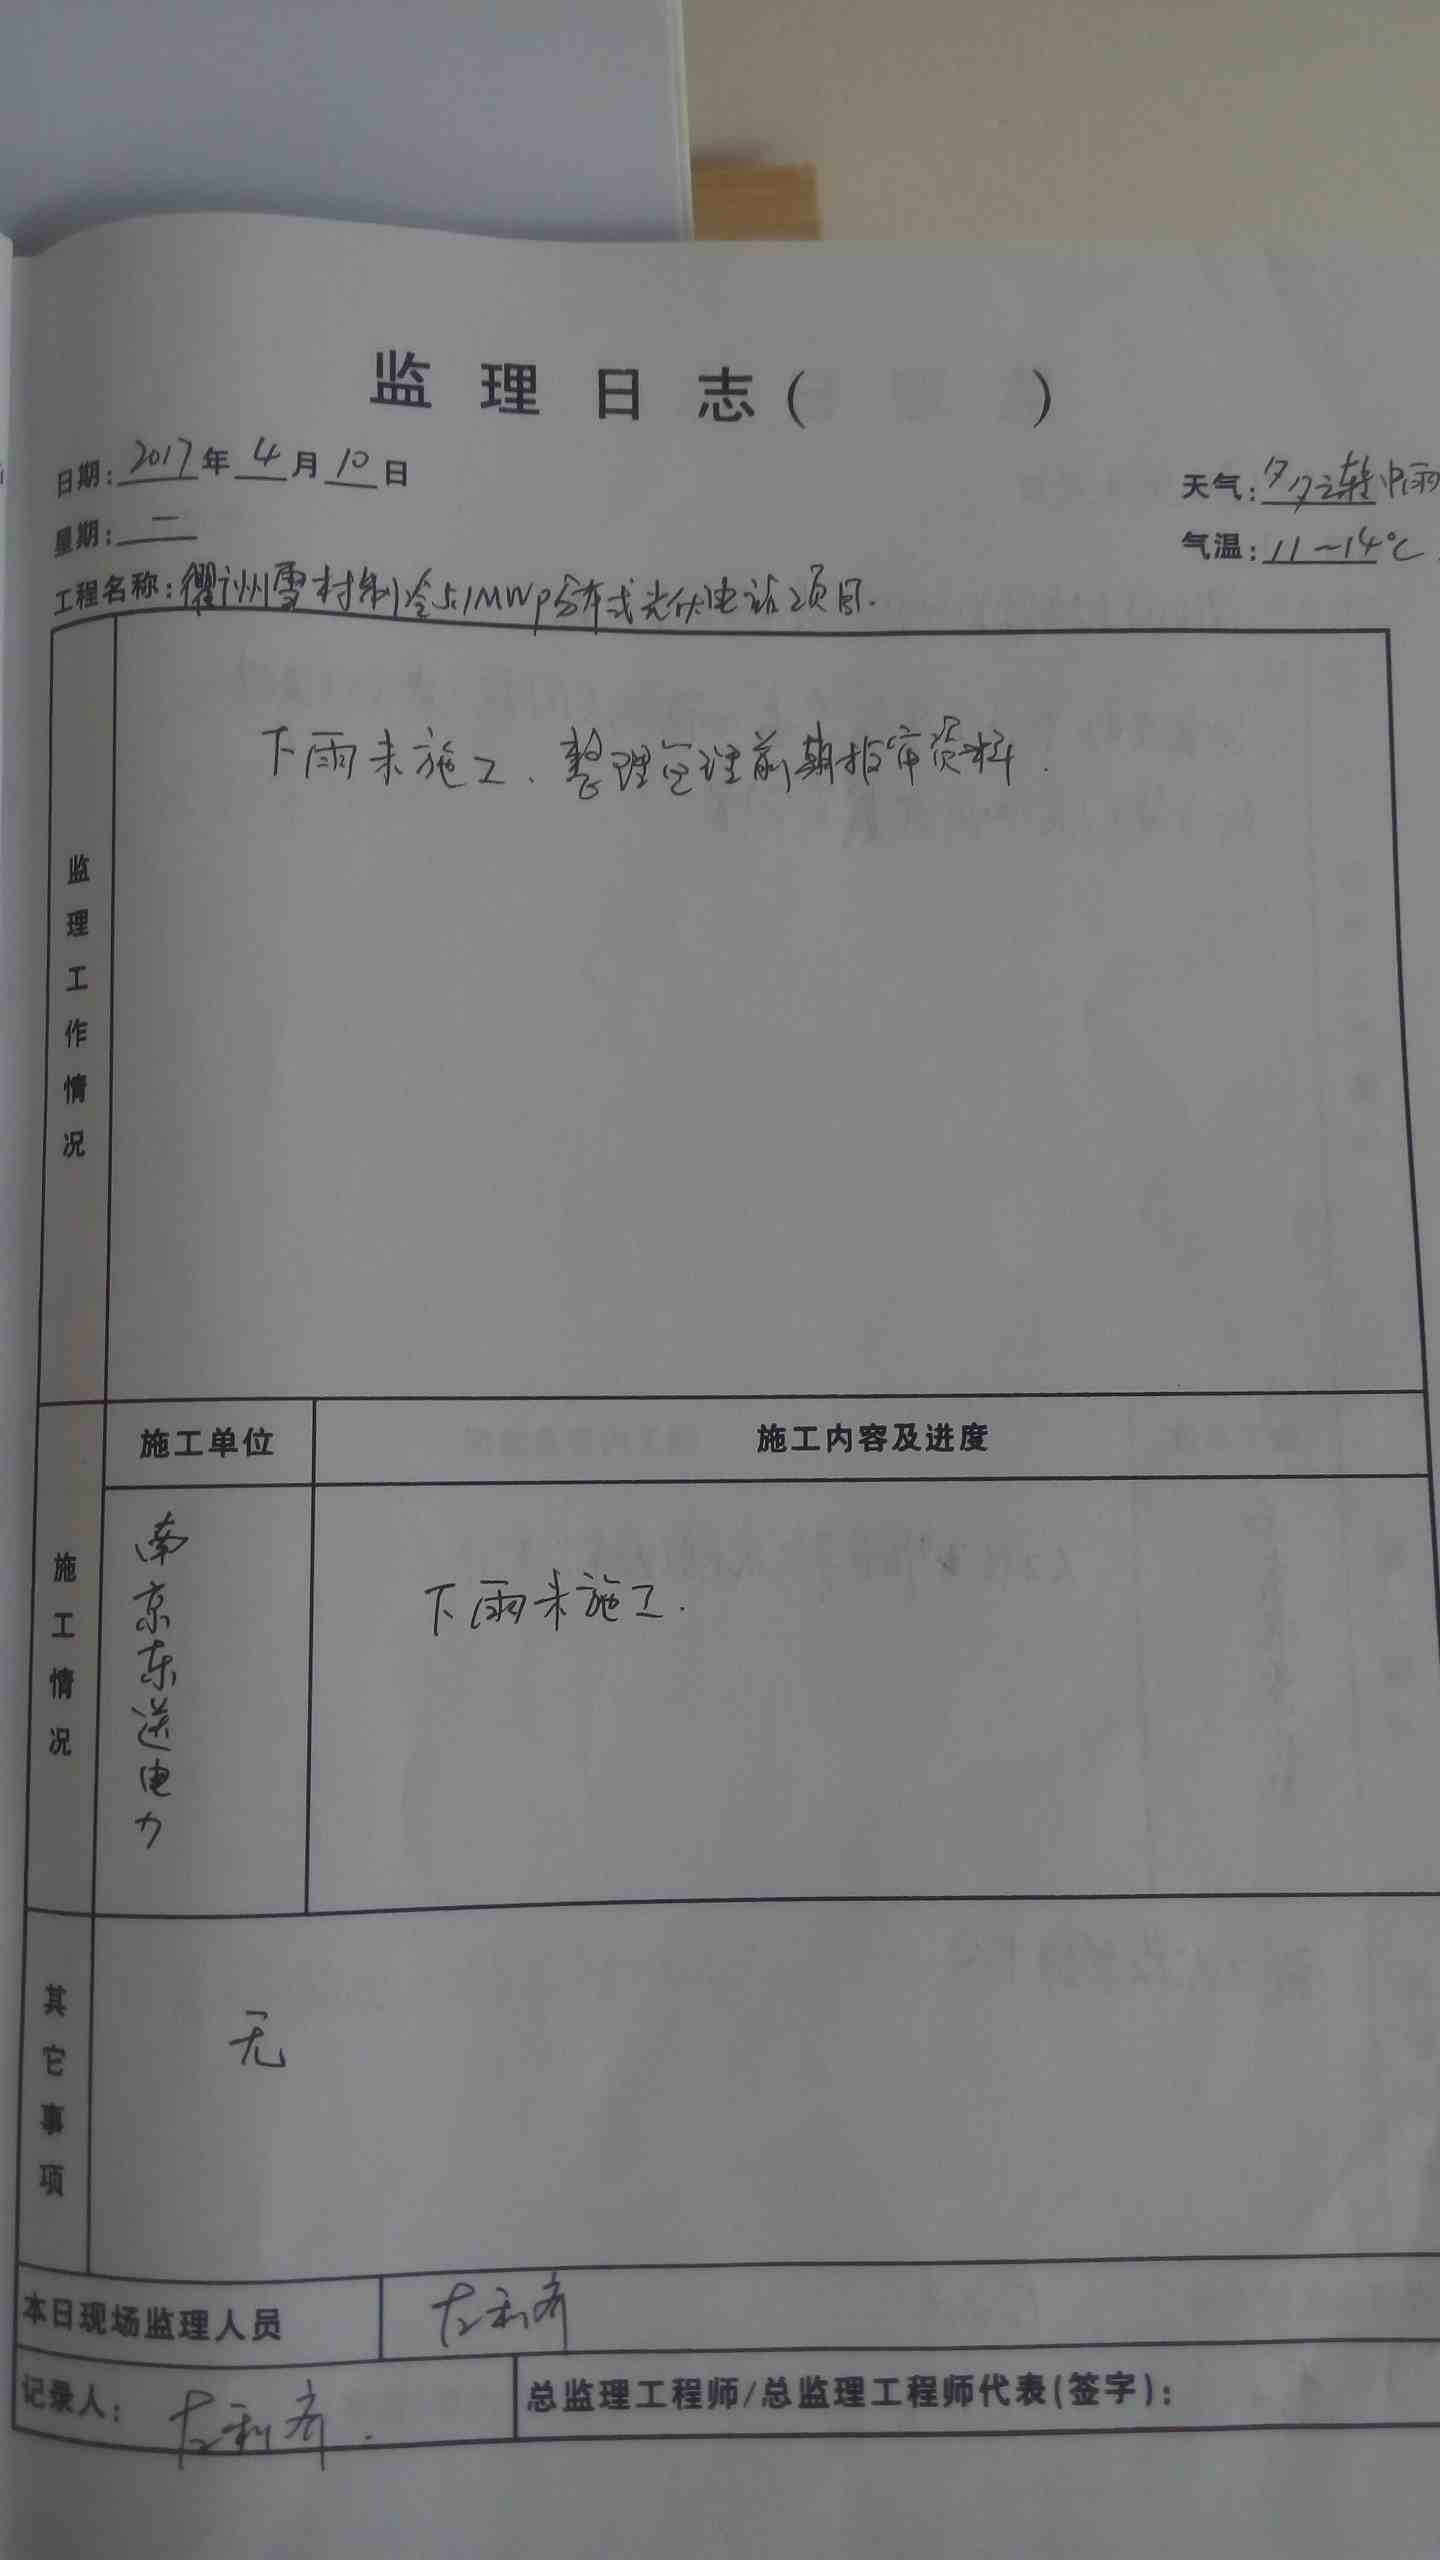 监理日志( )
日期: 2017 年 4 月 10 日
天气: 多云转中雨
星期: 一
气温: 11~14℃
工程名称: 衢州雪村制冷5.1MWp分布式光伏电站项目.
监理工作情况
下雨未施工、整理管理前期报审资料.
施工情况
施工单位
施工内容及进度
南京东送电力
下雨未施工.
其它事项
无
本日现场监理人员
左利齐
记录人: 左利齐.
总监理工程师/总监理工程师代表(签字):